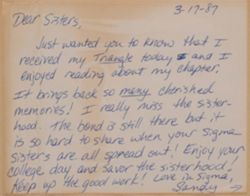 3-17-87
Dear Sisters,
Just wanted you to know that I
received my Triangle today and I
enjoyed reading about my chapter.
It brings back so many cherished
memories! I really miss the sister-
hood. The bond is still there but it
is so hard to share when your Sigma
sisters are all spread out! Enjoy your
college day and savor the sisterhood!
Keep up the good work! Love in Sigma,
Sandy